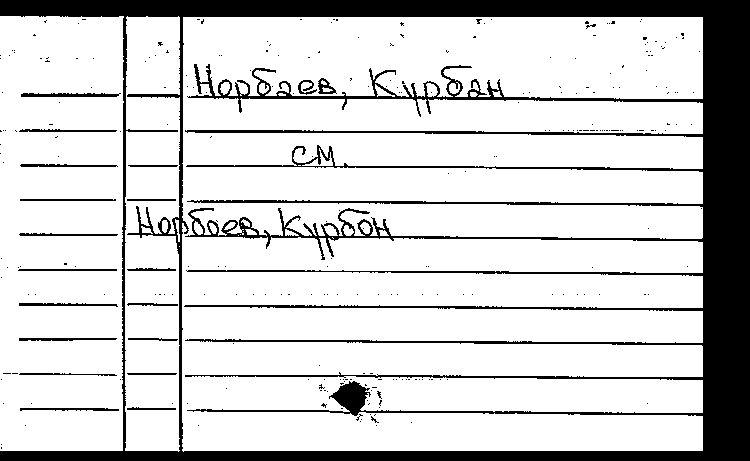 Норбаев, Курбан
см.
Норбоев, Курбон